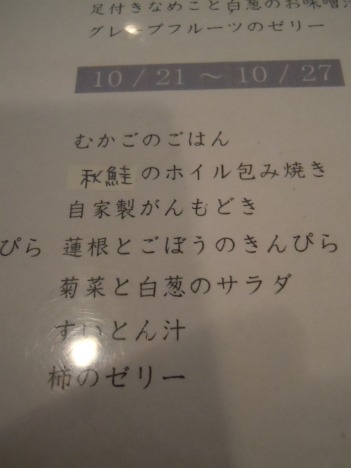 足付きなめこと白葱のお味噌汁
グレープフルーツのゼリー
10/21～10/27
むかごのごはん
秋鮭のホイル包み焼き
自家製がんもどき
ぴら 蓮根とごぼうのきんぴら
菊菜と白葱のサラダ
すいとん汁
柿のゼリー